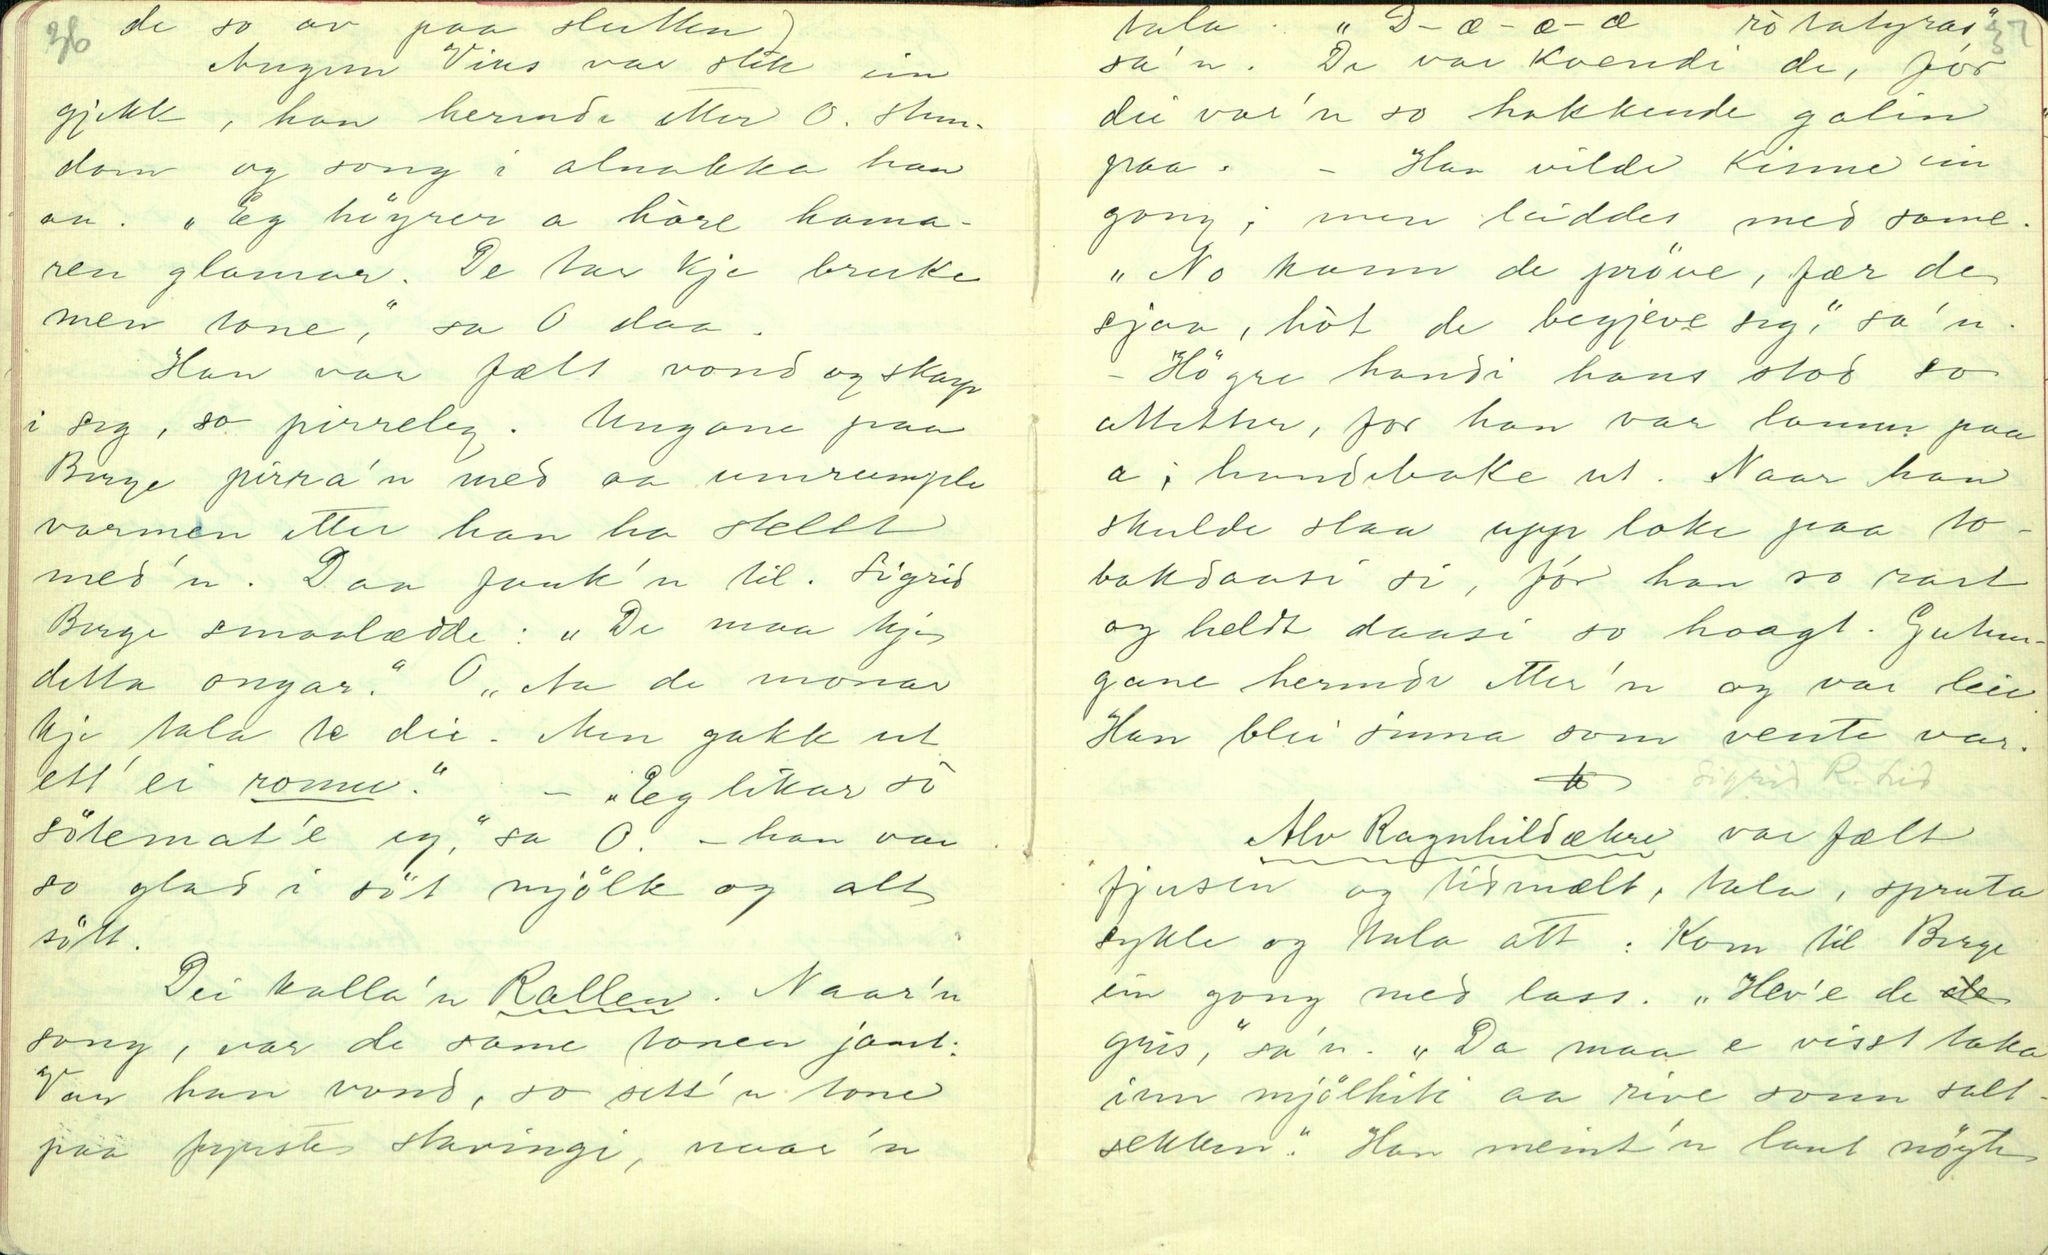 36
de so av paa slutten)
Augun Vius var slik ein
gjekk, han hermde etter O. stun-
dom og song i alnakka han
au. "Eg höyrer a håre hama-
ren glamar. De tar kje bruke
men tone," sa O daa.
Han var fælt vond og skarp
i seg, so pirreleg. Ungane paa
Berge pirra'n med aa umrumple
varmen etter han ha stellt
med'n. Daa fauk'n til. Sigrid
Berge smaalædde: "De maa kje
detta ongar." O "Aa de monar
kje tala te dei. Men gakk ut
ett' ei romn." – "Eg likar så
sötemat'e eg," sa O. – han var
so glad i söt mjölk og alt
sött.
Dei kalla'n Rallen. Naar'n
song, var de same tonen jamt.
Var han vond, so sett'n tone
paa fyrste stavingi, naar'n
37
tala. "D-æ-æ-æ rötatyras"
sa'n. De var kvendi de, för
dei var'n so hakkende galin
paa. – Han vilde kinne ein
gong; men leiddes med same.
"No kann de pröve, fær de
sjaa, höt de begjeve seg," sa'n.
– Högre handi hans stod so
attetter, for han var laum paa
a; handebake ut. Naar han
skulde slaa upp loke paa to-
bakdaasi si, för han so rart
og heldt daasi so haagt. Gutun-
gane hermde etter'n og var leie
Han blei sinna som vente var.
Sigrid R. tid
Alv Ragnhildækre var fælt
fjusen og tidmælt, tala, spruta
sykle og tala att. Kom til Berge
ein gong med lass. "Hev'e de de
gris," sa'n. "Da maa e visst taka
inn mjölkiti aa rive sonn salt-
sekken." Han meint'n laut nögte